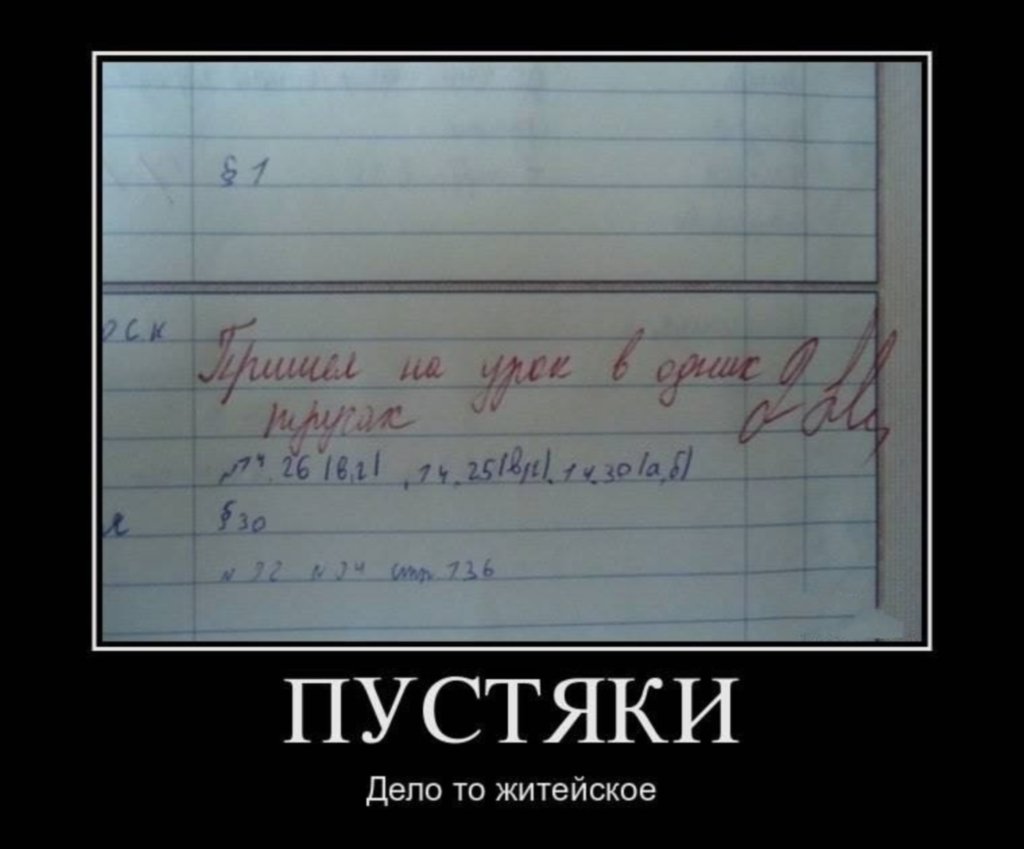 § 1
оск
Пришел на урок в одних
трусах
№14.26(в,г), 14.25(в,г), 14.30(а,б)
я
§30
№ 92 № 94 стр 136
ПУСТЯКИ
Дело то житейское